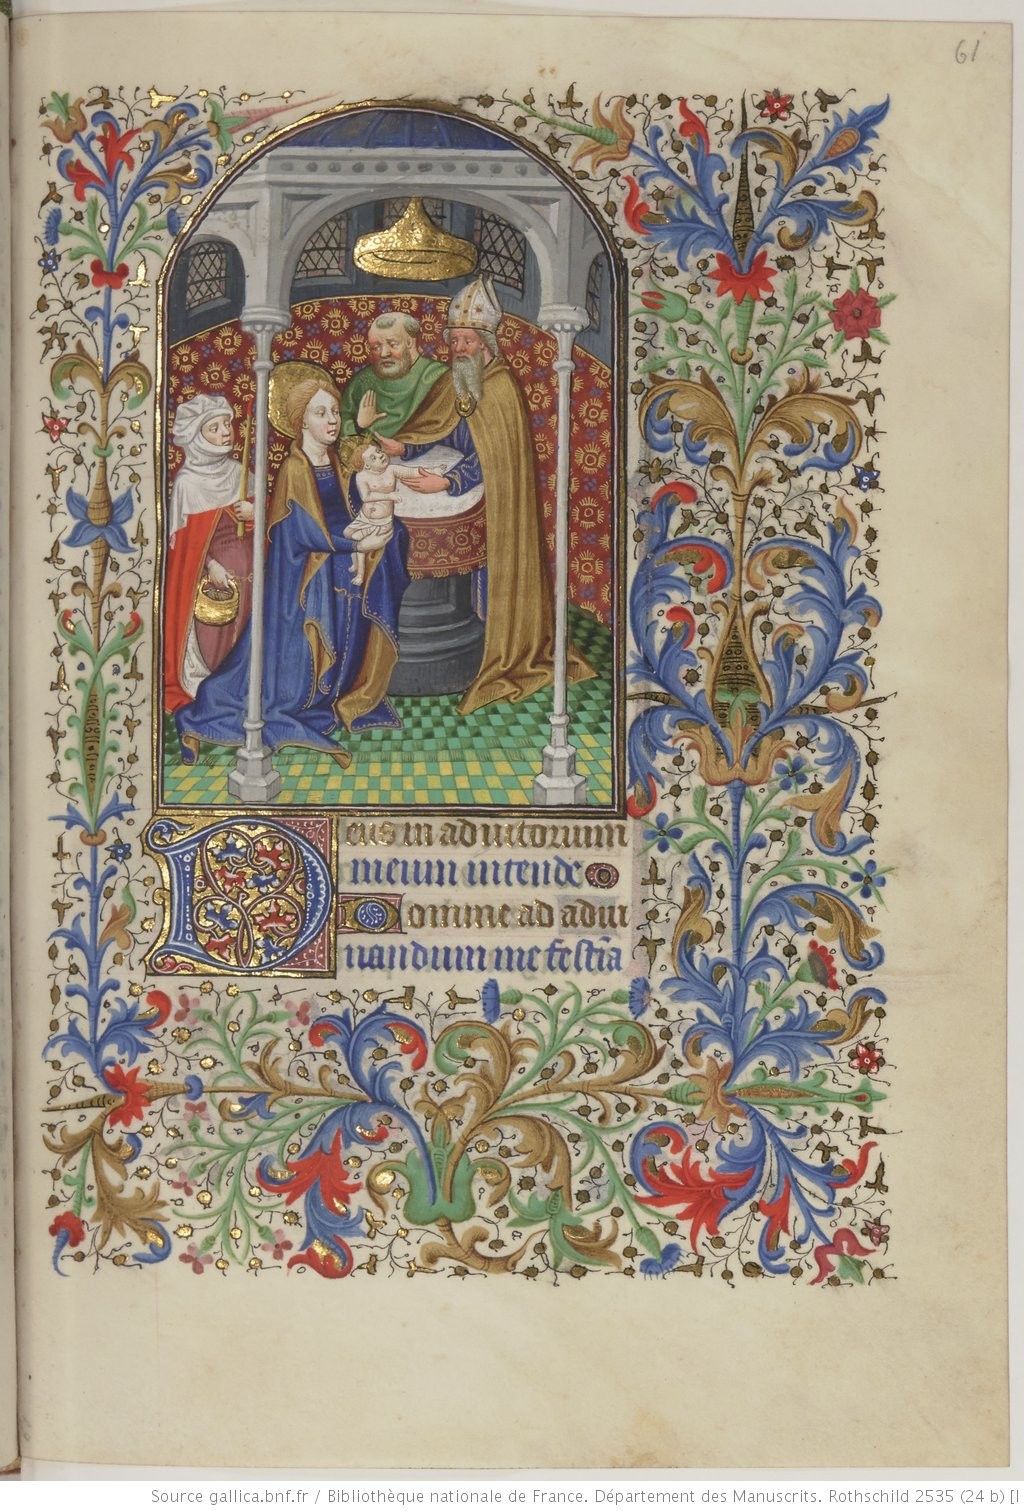 61
Deus in adiutorium
meum intende
Domine ad adiu
uandum me festīa
Source gallica.bnf.fr / Bibliothèque nationale de France. Département des Manuscrits. Rothschild 2535 (24 b) [I